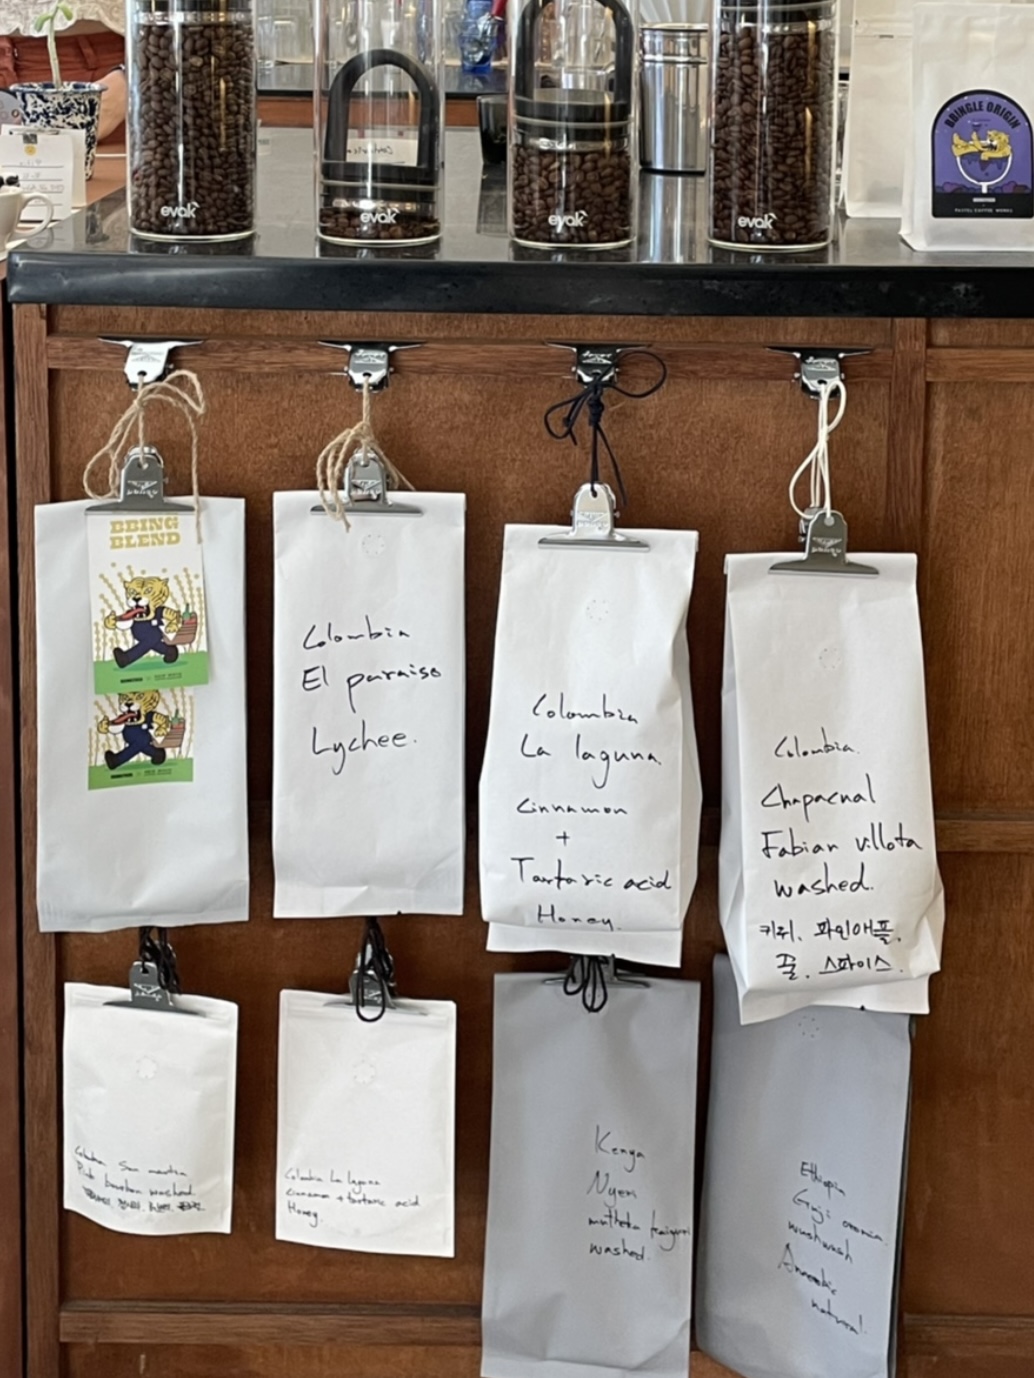 evak
evak
evak
evak
BRINGLE ORIGIN
PASTEL COFFEE WORKS
BBING
BLEND
Colombia
El paraiso
Lychee.
Colombia
La laguna
Cinnamon
+
Tartaric acid
Honey.
Colombia.
Chapacual
Fabian villota
washed.
키위, 파인애플,
꿀, 스파이스.
Colombia San martin
Pink bourbon washed
Colombia La laguna
cinnamon + tartaric acid
Honey.
Kenya
Nyeri
mutheka
washed.
Ethiopia
Guji oromia.
washwash
Anaerobic
natural.